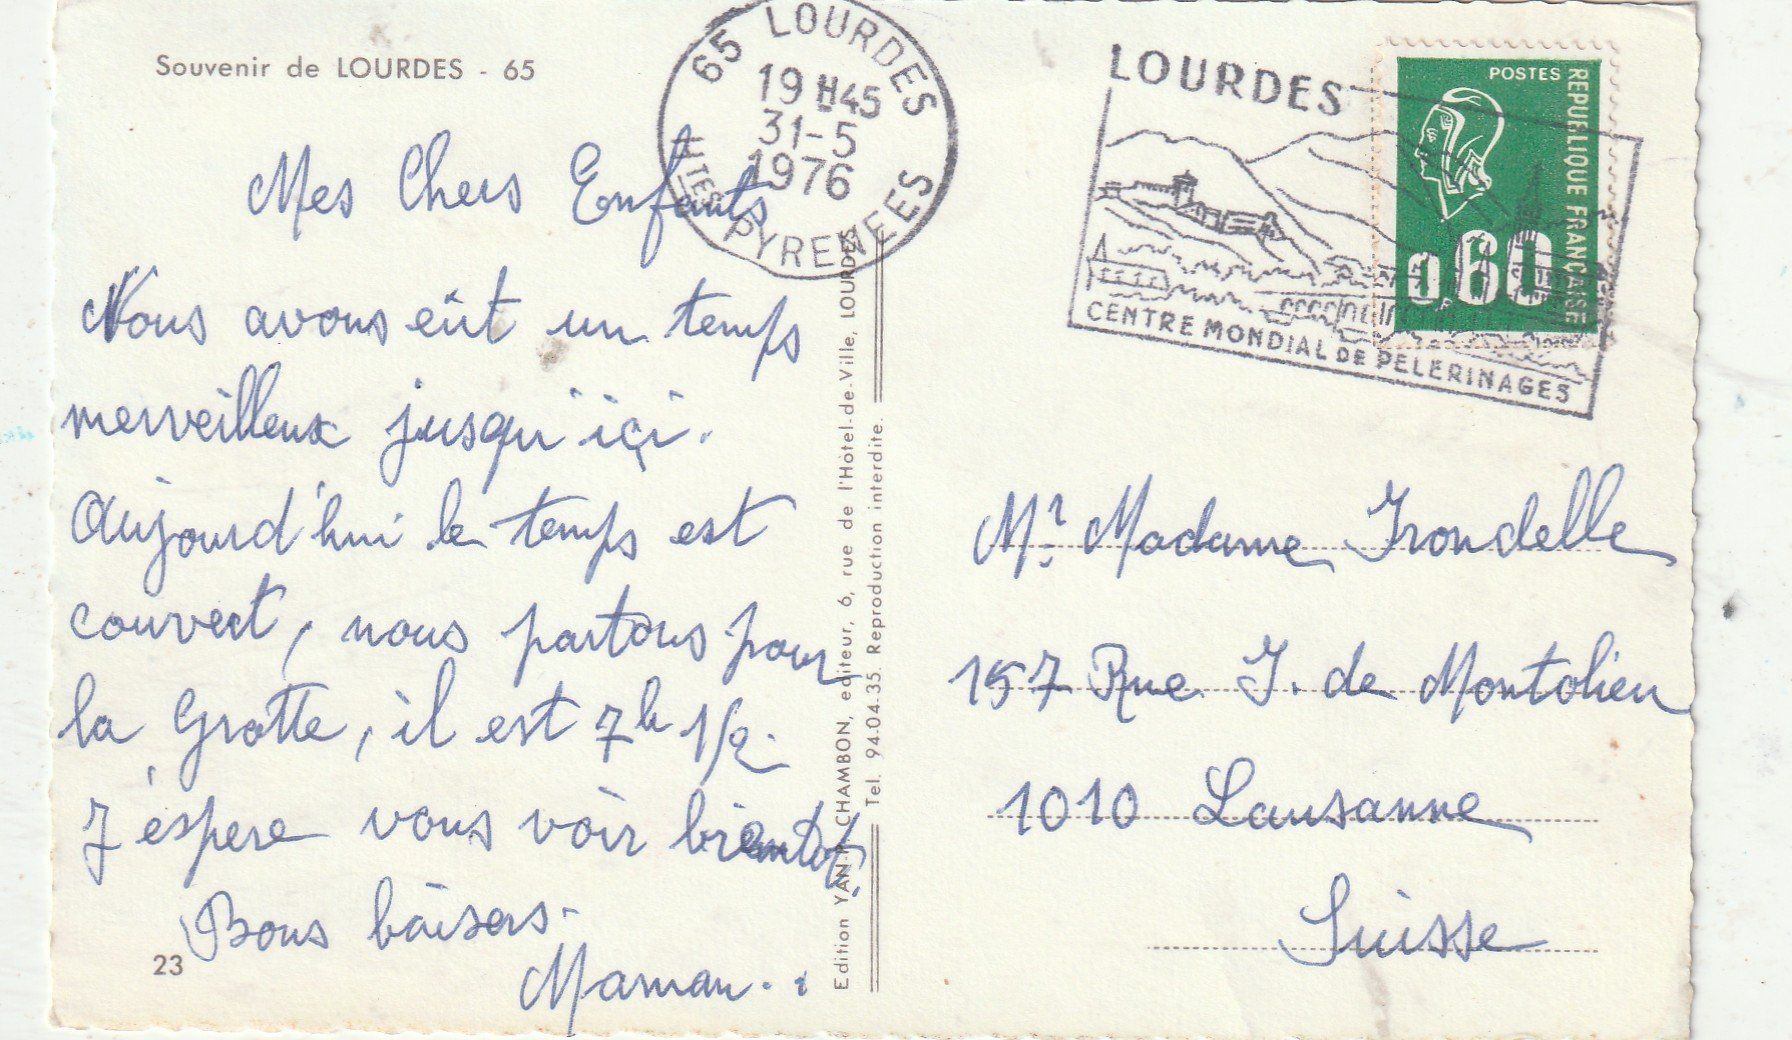 Souvenir de LOURDES - 65
65 LOURDES
19 H45
31-5
1976
HTES PYRENEES
LOURDES
CENTRE MONDIAL DE PELERINAGES
POSTES
REPUBLIQUE FRANCAISE
0.60
Mes Chers Enfants
Nous avons eût un temps
merveilleux jusqu'içi.
Aujourd'hui le temps est
couvert, nous partons pour
la Grotte, il est 7h 1/2.
J'éspere vous voir bientot.
Bons baisers.
Maman..
23
Edition YAN P. CHAMBON, editeur, 6, rue de l'Hôtel-de-Ville, LOURDES
Tel. 94.04-35. Reproduction interdite.
Mr. Madame Irondelle
157 Rue I. de Montolieu
1010 Lausanne
Suisse